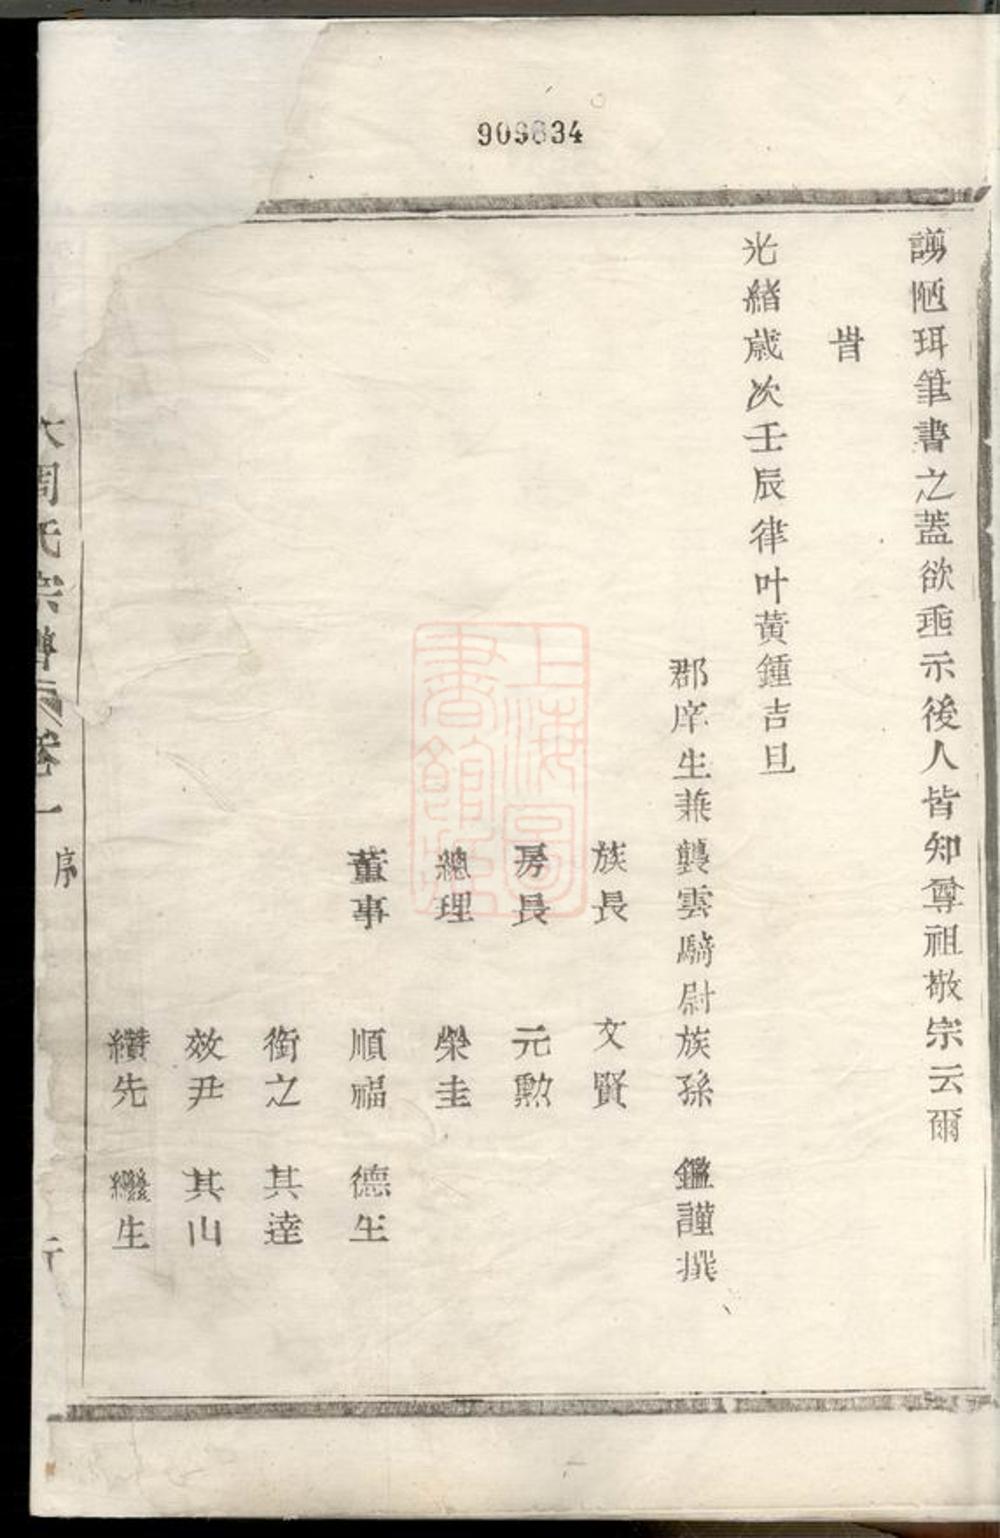 909834
謭陋珥筆書之蓋欲垂示後人皆知尊祖敬宗云爾
旹
光緒歲次壬辰律叶黃鍾吉旦
郡庠生兼襲雲騎尉族孫 鑑謹撰
族長 文賢
房長 元勲
總理 榮圭
董事 順福 德生
衡之 其達
效尹 其山
纘先 繼生
周氏宗譜 卷一 序
上海圖書館藏